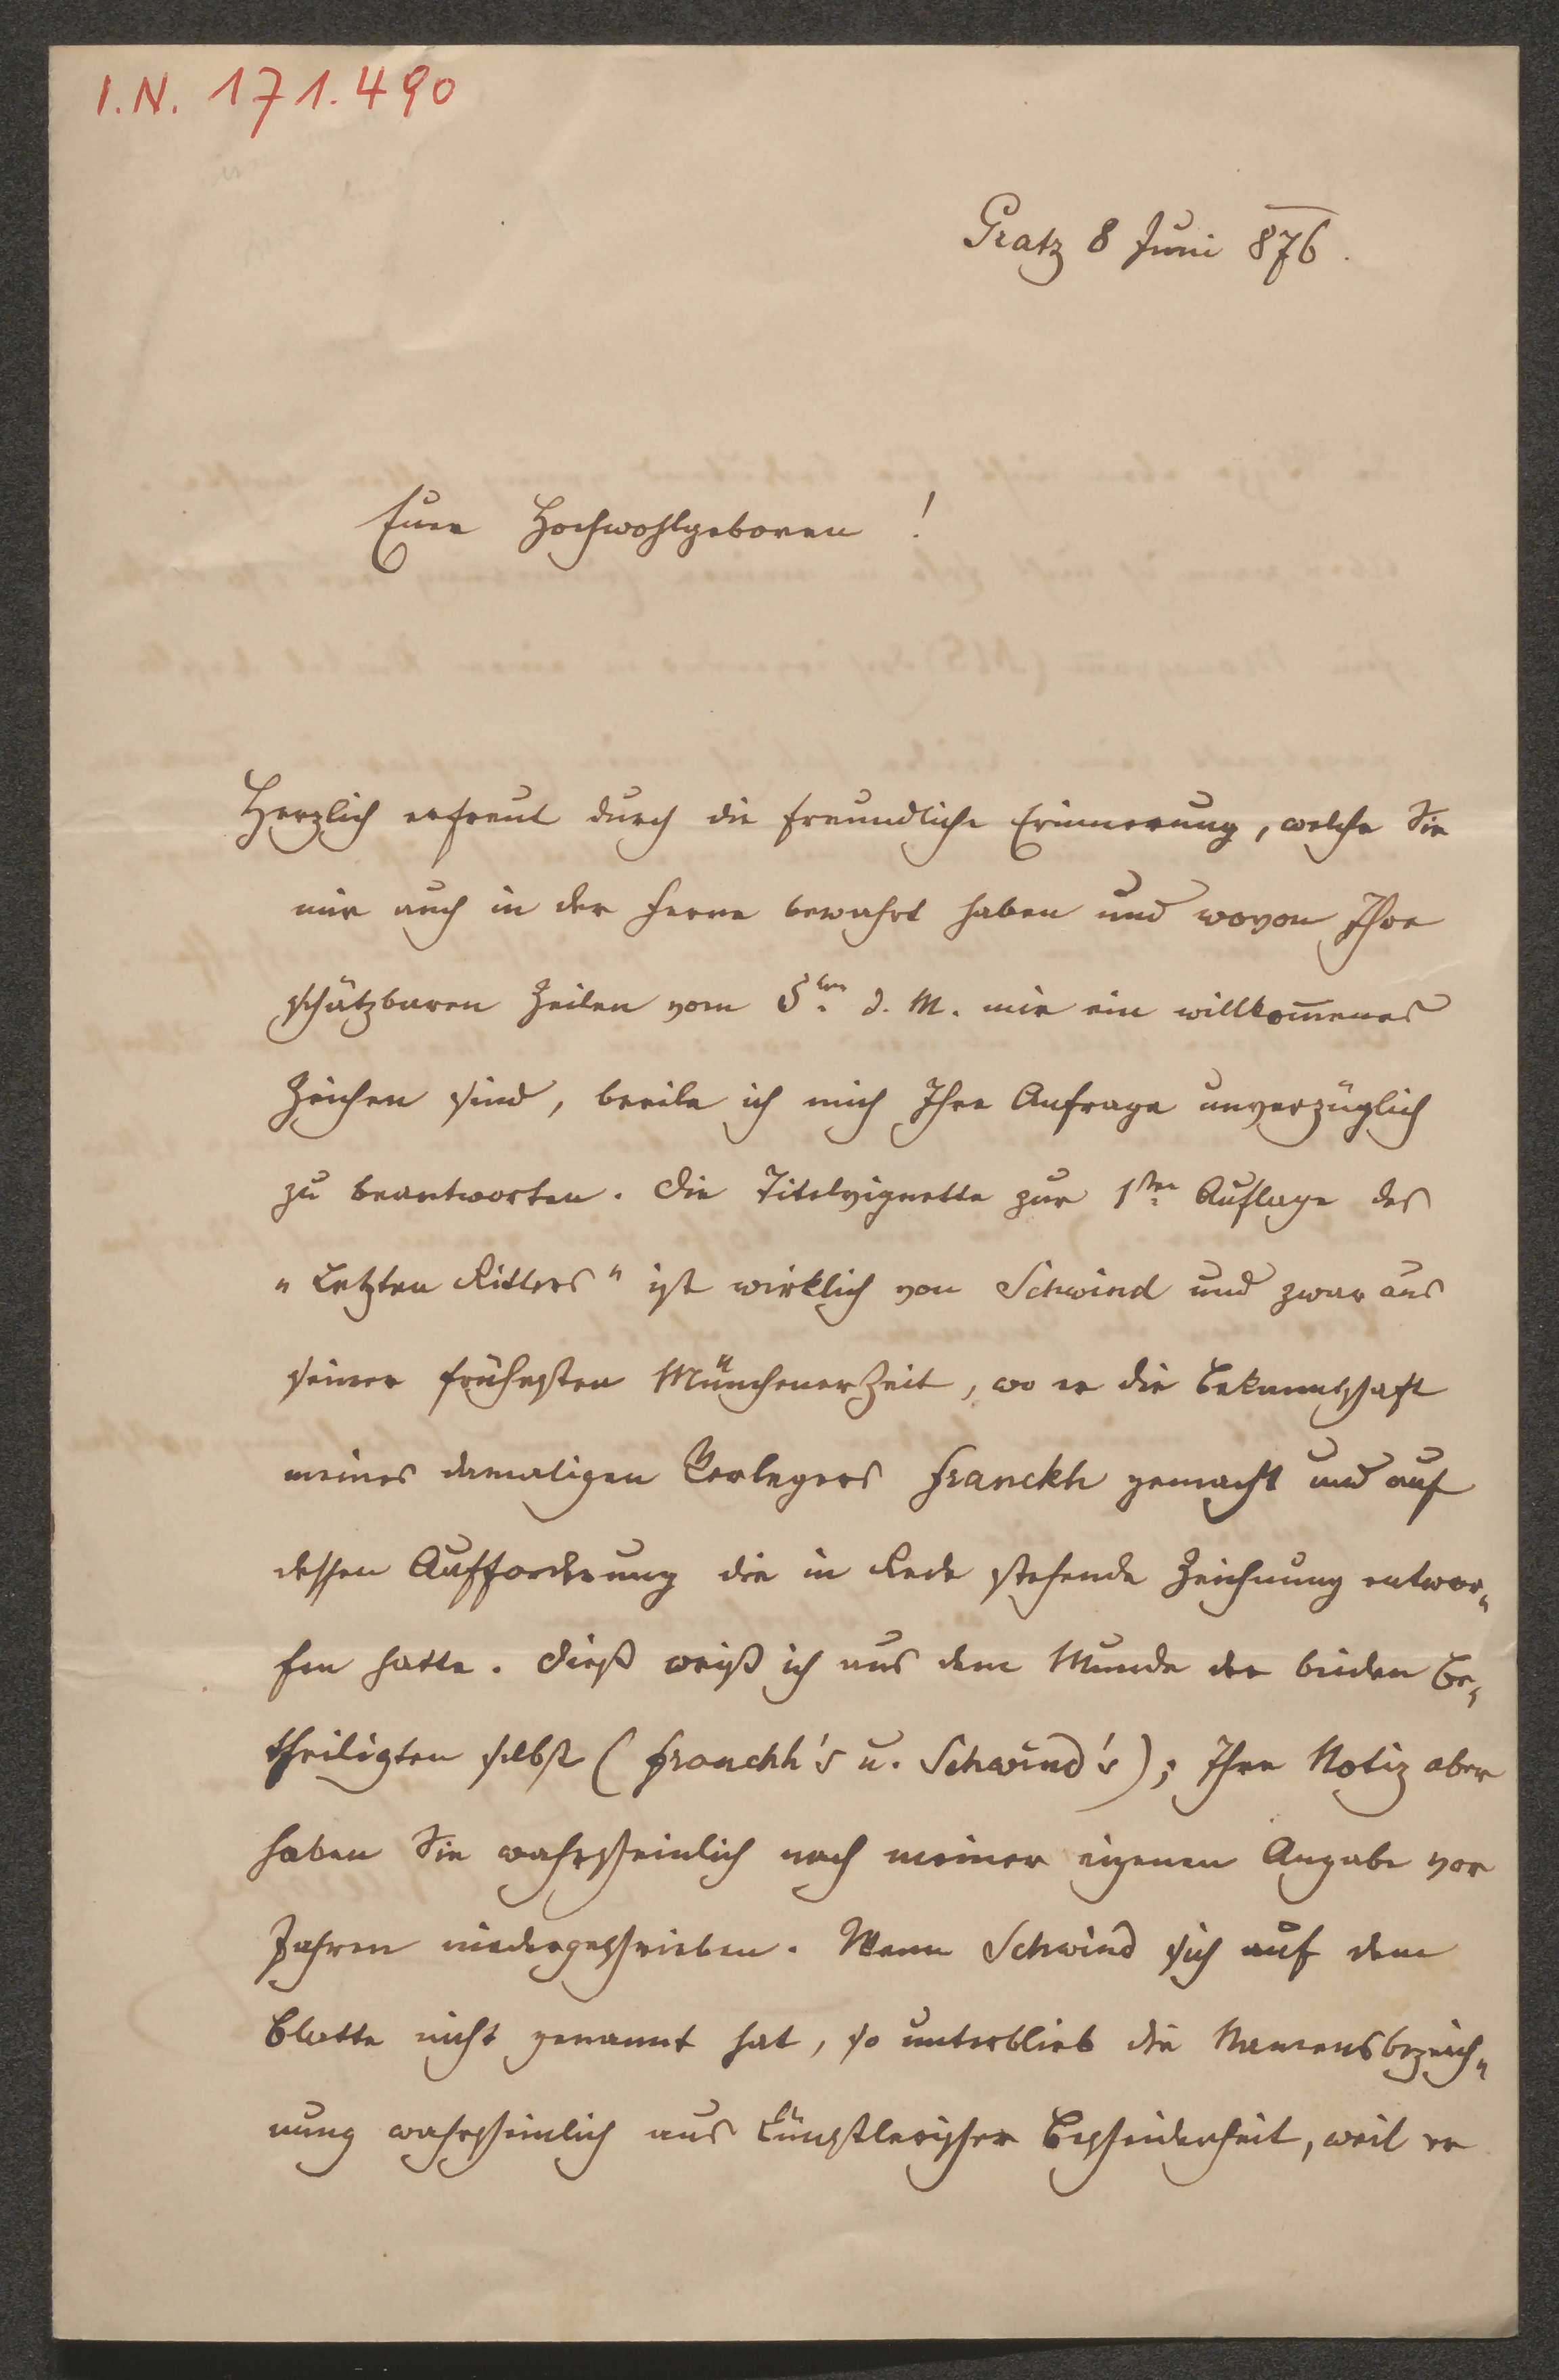 I.N. 171.490
Gratz 8 Juni 876.
Eure Hochwohlgeboren!
Herzlich erfreut durch die freundliche Erinnerung, welche Sie
mir auch in der Ferne bewahrt haben und wovon Ihre
schätzbaren Zeilen vom 5ten d. M. mir ein willkom̅enes
Zeichen sind, beeile ich mich Ihre Anfrage unverzüglich
zu beantworten. Die Titelvignette zur 1sten Auflage des
„Letzten Ritters" ist wirklich von Schwind und zwar aus
seiner frühesten Münchener Zeit, wo er die Bekanntschaft
meines damaligen Verlegers Franckh gemacht und auf
dessen Aufforderung die in Rede stehende Zeichnung entwor„
fen hatte. Dieß weiß ich aus dem Munde der beiden Be„
theiligten selbst (Franckh's u. Schwind's); Ihre Notiz aber
haben Sie wahrscheinlich nach meiner eigenen Angabe vor
Jahren niedergeschrieben. Wenn Schwind sich auf dem
Blatte nicht genannt hat, so unterblieb die Namensbezeich„
nung wahrscheinlich aus künstlerischer Bescheidenheit, weil er